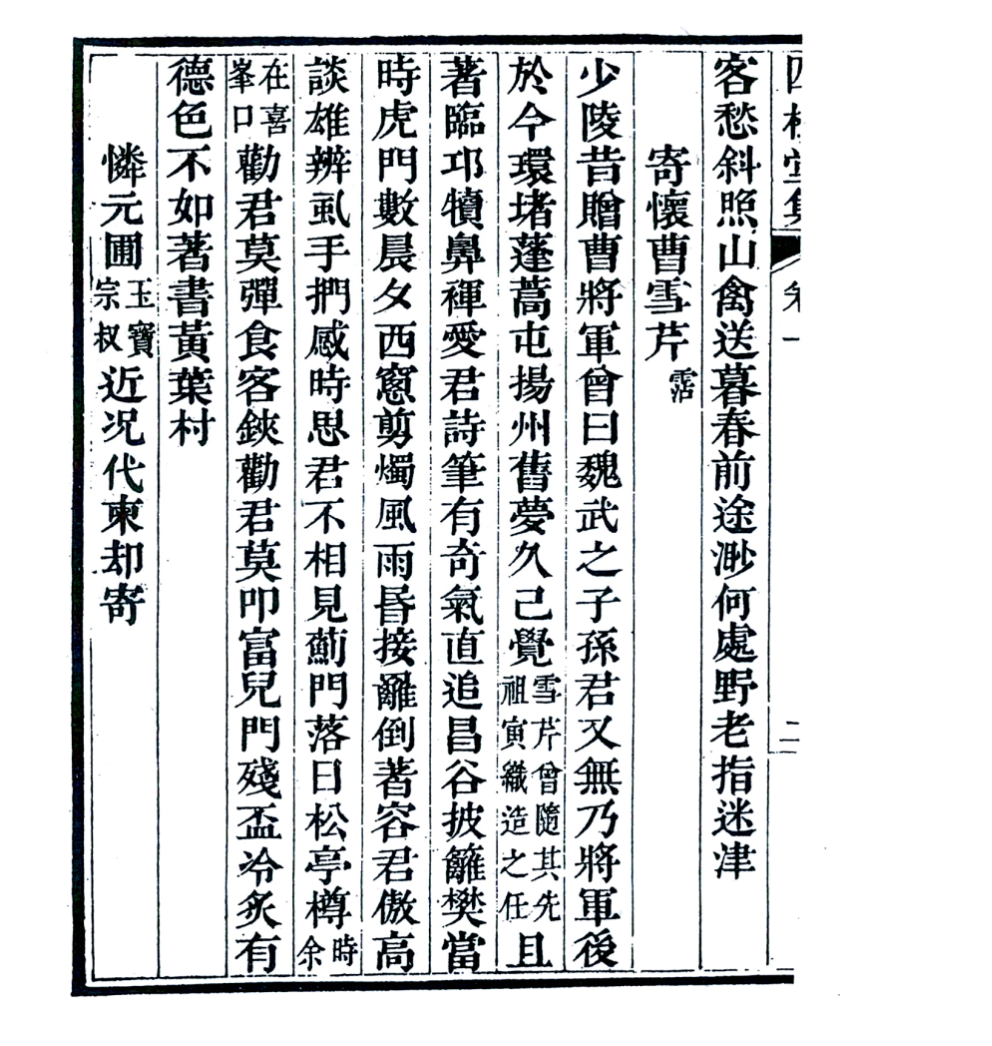 四松堂集 卷一 二
客愁斜照山禽送暮春前途渺何處野老指迷津
寄懷曹雪芹霑
少陵昔贈曹將軍曾曰魏武之子孫君又無乃將軍後
於今環堵蓬蒿屯揚州舊夢久已覺雪芹曾隨其先祖寅織造之任且
著臨邛犢鼻褌愛君詩筆有奇氣直追昌谷披籬樊當
時虎門數晨夕西窻剪燭風雨昏接䍦倒著容君傲高
談雄辨虱手捫感時思君不相見薊門落日松亭樽時余
在喜峯口勸君莫彈食客鋏勸君莫叩富兒門殘盃冷炙有
德色不如著書黃葉村
憐元圃玉寶宗叔近况代柬却寄